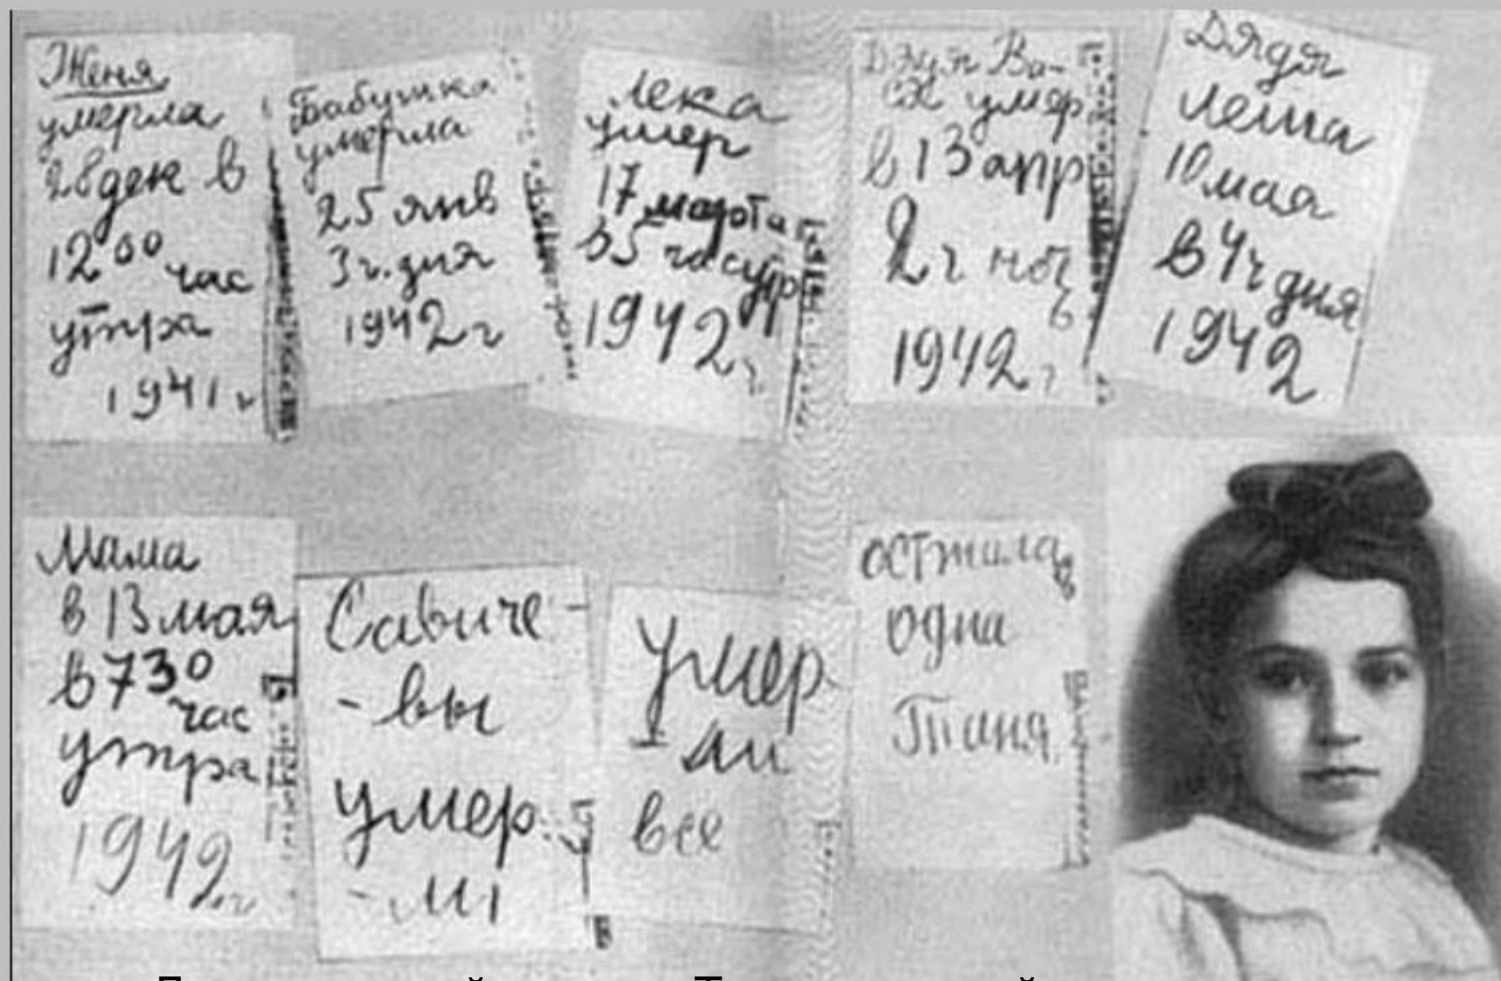 Женя
умерла
28 дек в
12⁰⁰ час
утра
1941 г
Бабушка
умерла
25 янв
3 ч. дня
1942 г
Лека
умер
17 марта
в 5 час утр
1942 г.
Дядя Ва-
ся умер
в 13 апр
2 ч ноч
1942 г
Дядя
Леша
10 мая
в 4 ч дня
1942
Мама
в 13 мая
в 7 30
час
утра
1942 г
Савиче-
-вы
умер.
-ли
Умер
-ли
все
осталась
одна
Таня